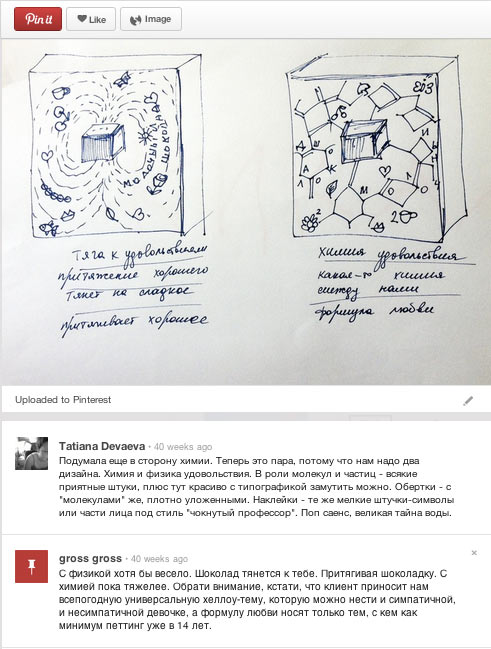 Pin it
Like
Image
МОЛОЧНЫЙ
ШОКОЛАД
Ш О К О Л А Д
М О Л О Ч Н Ы Й
2
2
Тяга к удовольствиям
притяжение хорошего
Тянет на сладкое
притягивает хорошее
Химия удовольствия
какая-то химия
между нами
формула любви
Uploaded to Pinterest
Tatiana Devaeva · 40 weeks ago
Подумала еще в сторону химии. Теперь это пара, потому что нам надо два
дизайна. Химия и физика удовольствия. В роли молекул и частиц - всякие
приятные штуки, плюс тут красиво с типографикой замутить можно. Обертки - с
"молекулами" же, плотно уложенными. Наклейки - те же мелкие штучки-символы
или части лица под стиль "чокнутый профессор". Поп саенс, великая тайна воды.
gross gross · 40 weeks ago
С физикой хотя бы весело. Шоколад тянется к тебе. Притягивая шоколадку. С
химией пока тяжелее. Обрати внимание, кстати, что клиент приносит нам
всепогодную универсальную хеллоу-тему, которую можно нести и симпатичной,
и несимпатичной девочке, а формулу любви носят только тем, с кем как
минимум петтинг уже в 14 лет.